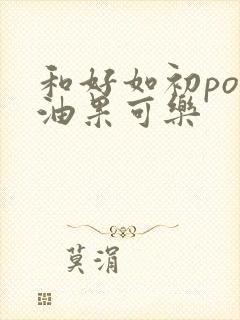 和好如初po
油果可樂
莫涓